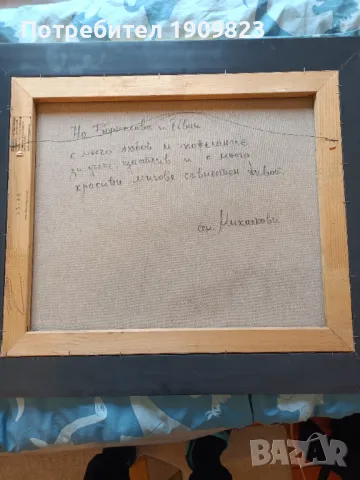 Потребител 1909823
На Борислава и Иван
с много любов и пожелание
за дълъг щастлив и с много
красиви мигове съвместен живот.
сем. Михалкови
BAZAR